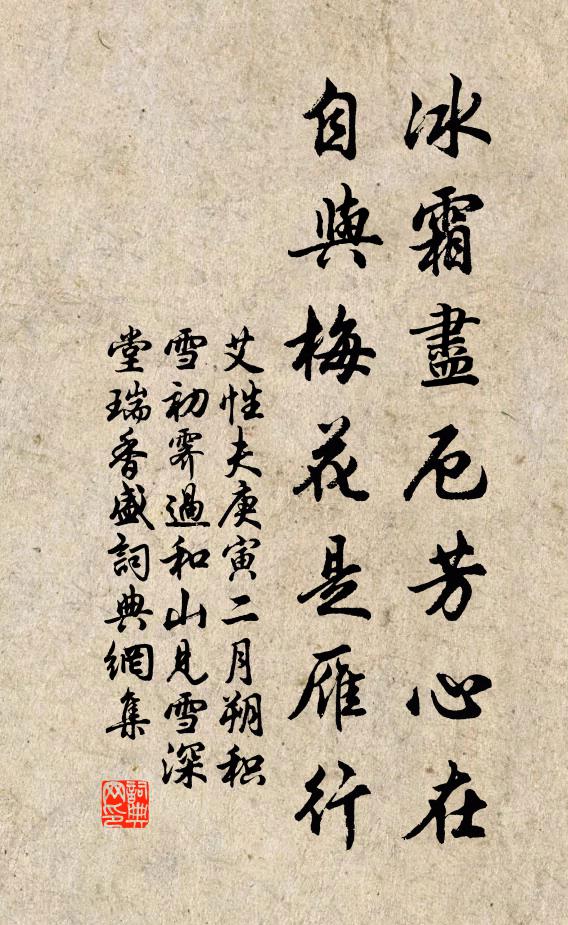 冰霜盡厄芳心在
自與梅花是雁行
艾性夫庚寅二月朔积
雪初霁過和山見雪深
堂瑞香盛詞典網集
詞典
网印